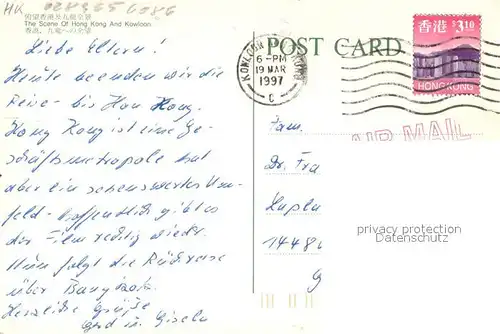 HK 028965 6086
俯望香港及九龍全景
The Scene Of Hong Kong And Kowloon
香港、九竜への全望
POST CARD
香港 $3.10
HONG KONG
KOWLOON
6-PM
19 MAR
1997
C
AIR MAIL
Liebe Eltern!
Heute beenden wir die
Reise - bis Hon Kong.
Hong Kong ist eine Ge-
schäftsmetropole hat
aber ein sehenswertes Um-
feld - hoffentlich gibt es
der Film richtig wieder.
Nun folgt die Rückreise
über Bangkok.
Herzliche Grüße
Gerd u. Gisela
Fam.
Dr. Fra
1448
privacy protection
Datenschutz